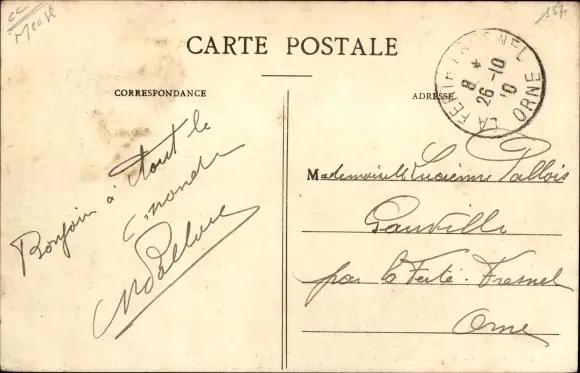 cc
Meuse
157
CARTE POSTALE
CORRESPONDANCE
ADRESSE
LA FERTE FRESNEL
8 *
26-10
10
ORNE
Bonjour à tout le
monde
Mademoiselle Lucienne Pallois
Gauville
par la Ferté-Fresnel
Orne